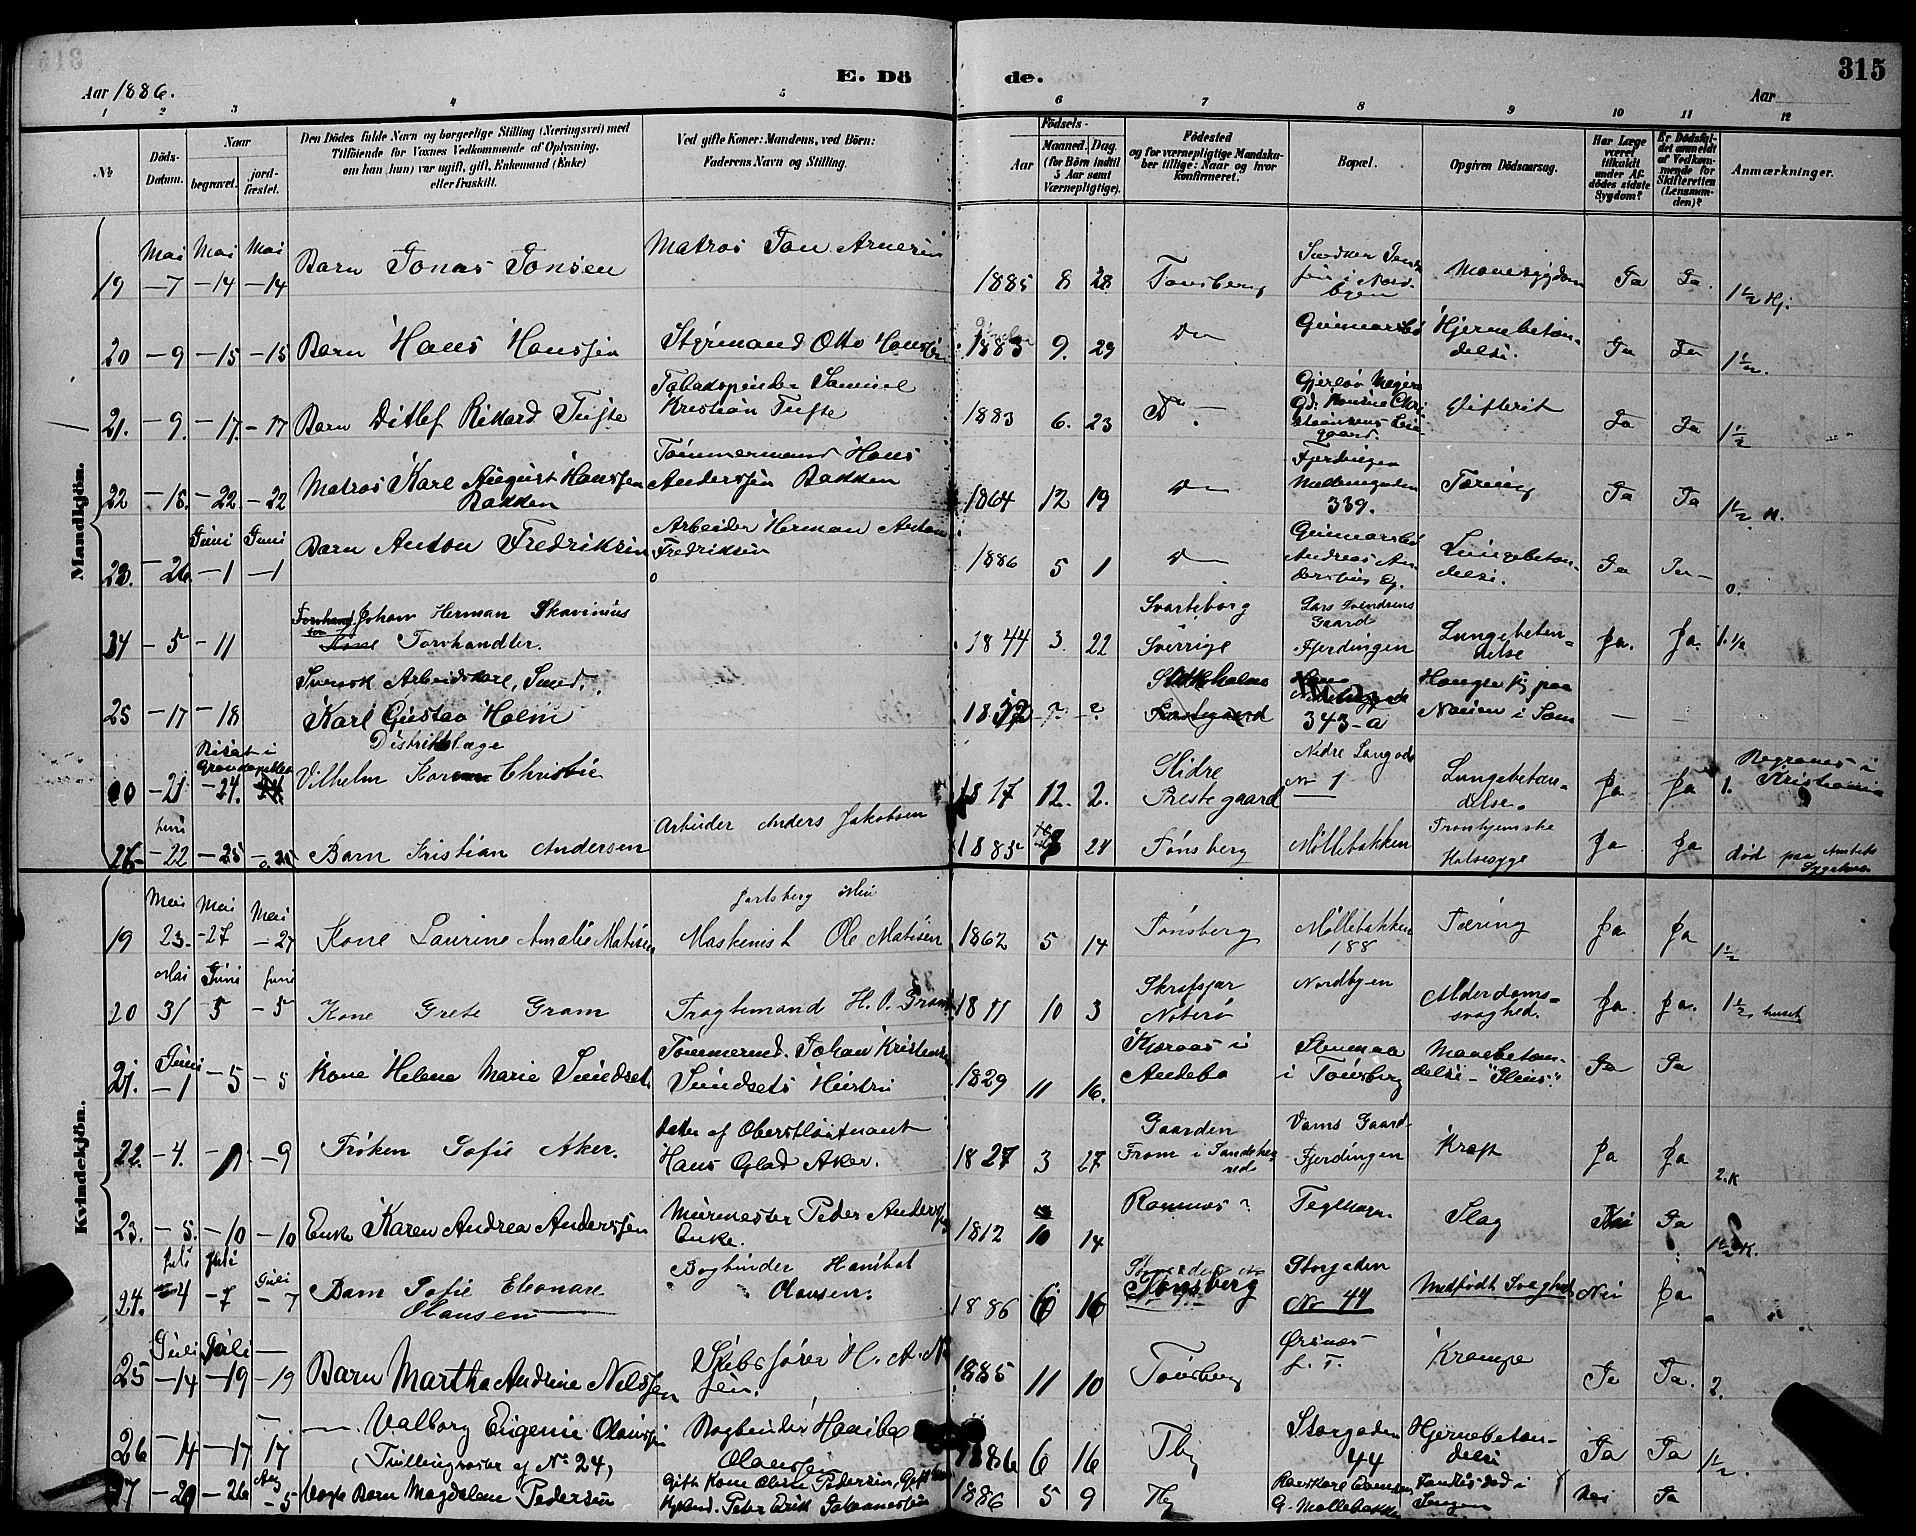 315
E. Dö de.
Aar 1886.
Aar
1 2 3 4 5 6 7 8 9 10 11 12
No
Döds-Datum.
Naar
begravet.
jord-fæstet.
Den Dödes fulde Navn og borgerlige Stilling (Næringsvei) med
Tilföiende for Voxnes Vedkommende af Oplysning,
om han (hun) var ugift, gift, Enkemand (Enke)
eller fraskilt.
Ved gifte Koner: Mandens, ved Börn:
Faderens Navn og Stilling.
Födsels-
Aar
Maaned. Dag.
(for Börn indtil
5 Aar samt
Værnepligtige).
Födested
og for værnepligtige Mandska-
ber tillige: Naar og hvor
konfirmeret.
Bopæl.
Opgiven Dödsaarsag.
Har Læge
været
tilkaldt
under Af-
dödes sidste
Sygdom?
Er Dödsfal-
det anmeldt
af Vedkom-
mende for
Skifteretten
(Lensman-
den)?
Anmærkninger.
Mandkjön.
Mai Mai Mai
19 – 7 – 14 – 14 Barn Jonas Jonsen Matros Jon Arnesen 1885 8 28 Tönsberg Mavesygdom Ja Ja. 1 1/2 Hj.
20 – 9 – 15 – 15 Barn Hans Hanssen Styrmand Otto Hanssen 1883 9. 29 Do Gunnarsbö Hjernebeten-
delse. Ja Ja 1 1/2.
21. – 9. – 17 – 17 Barn Ditlef Rikard Tufte Tobaksspinder Samuel
Kristian Tufte 1883 6. 23 Do Difterit Ja Ja 1 1/2
22 – 18. – 22 – 22 Matros Karl August Hanssen
Bakken Tømmermand Hans
Anderssen Bakken 1864 12 19 Do Fjerdingen
339. Tæring Ja Ja 1 1/2 K.
Juni Juni
23. – 26. – 1 – 1 Barn Anton Fredriksen Arbeider Herman Anton
Fredriksen 1886 5 1 Do Gunnarsbö
Andreas An-
dersens Eg. Lungebeten-
delse. Ja Ja – 0.
24 – 5 – 11 Johan Herman Skavinius
Torvhandler. 1844 3. 22 Svarteborg
Sverrige Lars Svendsens
Gaard
Fjerdingen Lungebeten-
delse Ja. Ja. 1. 1/2
25 – 17 – 18 Svensk Arbeidskarl, Smed.
Karl Gustav Holm 1832 – ? – ? Stokholm 343-a Hængte sig paa
Næsen i Sem –
Distriktslæge
0 – 21 – 24. Vilhelm Christie 1817 12. 2. Slidre
Prestegaard Nedre Langgade
No 1 Lungebeten-
delse. Ja Ja 1. Begraves i
Kristiania
Juni
26 – 22 – 25 – 25 Barn Kristian Andersen Arbeider Anders Jakobsen 1885 24 Tönsberg Möllebakken Trondhjemske
Halsesyge Ja Ja död paa Amtets
Sygehus
Kvindekjön.
Mai Mai Mai
19 23. – 27 – 27 Kone Laurine Amalie Matisen Jarlsberg
Maskinist Ole Matisen 1862 5 14 Tönsberg Möllebakken
188 Tæring Ja Ja 1 1/2
Mai Juni Juni
20 31 5 – 5 Kone Grete Gram Fragtemand H. O. Gram 1811 10 3 Nøterø Nordbyen Alderdoms-
svaghed. Ja Ja. 1 1/2
Juni
21. – 1 – 5 – 5 Kone Helene Marie Sundset Tömmermd. Johan Kristensen
Sundsets Hustru 1829 11 16. Kjæraas i
Andebo Stenmale
i Tönsberg Mavebeten-
delse – "Ileus". Ja Ja
22. – 4. – 9 Frøken Sofie Aker. Datter af Oberstløitnant
Hans Glad Aker. 1827 3 27 Gaarden
Fram i Sandehe-
red Vams Gaard
Fjerdingen Kræft Ja Ja 2. K
23. – 5. – 10 – 10 Enke Karen Andrea Anderssen Murmester Peder Anderssens
Enke. 1812 10 14 Ramnæs ? Teglhagen Slag Nei Ja 1 1/2 K.
Juli Juli Juli
24. 4 – 7 – 7 Barn Sofie Eleonore
Olaussen Bogbinder Hanibal
Olausen. 1886 6 16 Tönsberg Storgaden
No 44 Medfödt Svaghed Nei Ja
Juli Juli –
25 – 14 – 19 – 19 Barn Martha Andrine Nilssen Skibsfører H. A. Nils-
sen. 1885 11 10 Tönsberg Ørsnes
f. T. Krampe Ja Ja. 2.
26 – 14 – 17 17 – Valborg Eugenie Olaussen
(Tvillingsøster af No 24) Bogbinder Hanibal
Olaussen 1886 6 16 Tbg Storgaden
44 Hjernebeten-
delse Ja Ja 1 1/2.
27 – 29 – 26 Aug – 5 Barn Magdalene Pedersen Gift Kone Pedersen, Gift
Peter Erik Johannessen 1886 5 9 Tbg G. Möllebakken Fandtes död i
Sengen Nei Ja